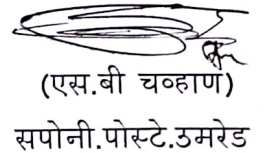 (एस.बी चव्हाण)
सपोनी.पोस्टे.उमरेड